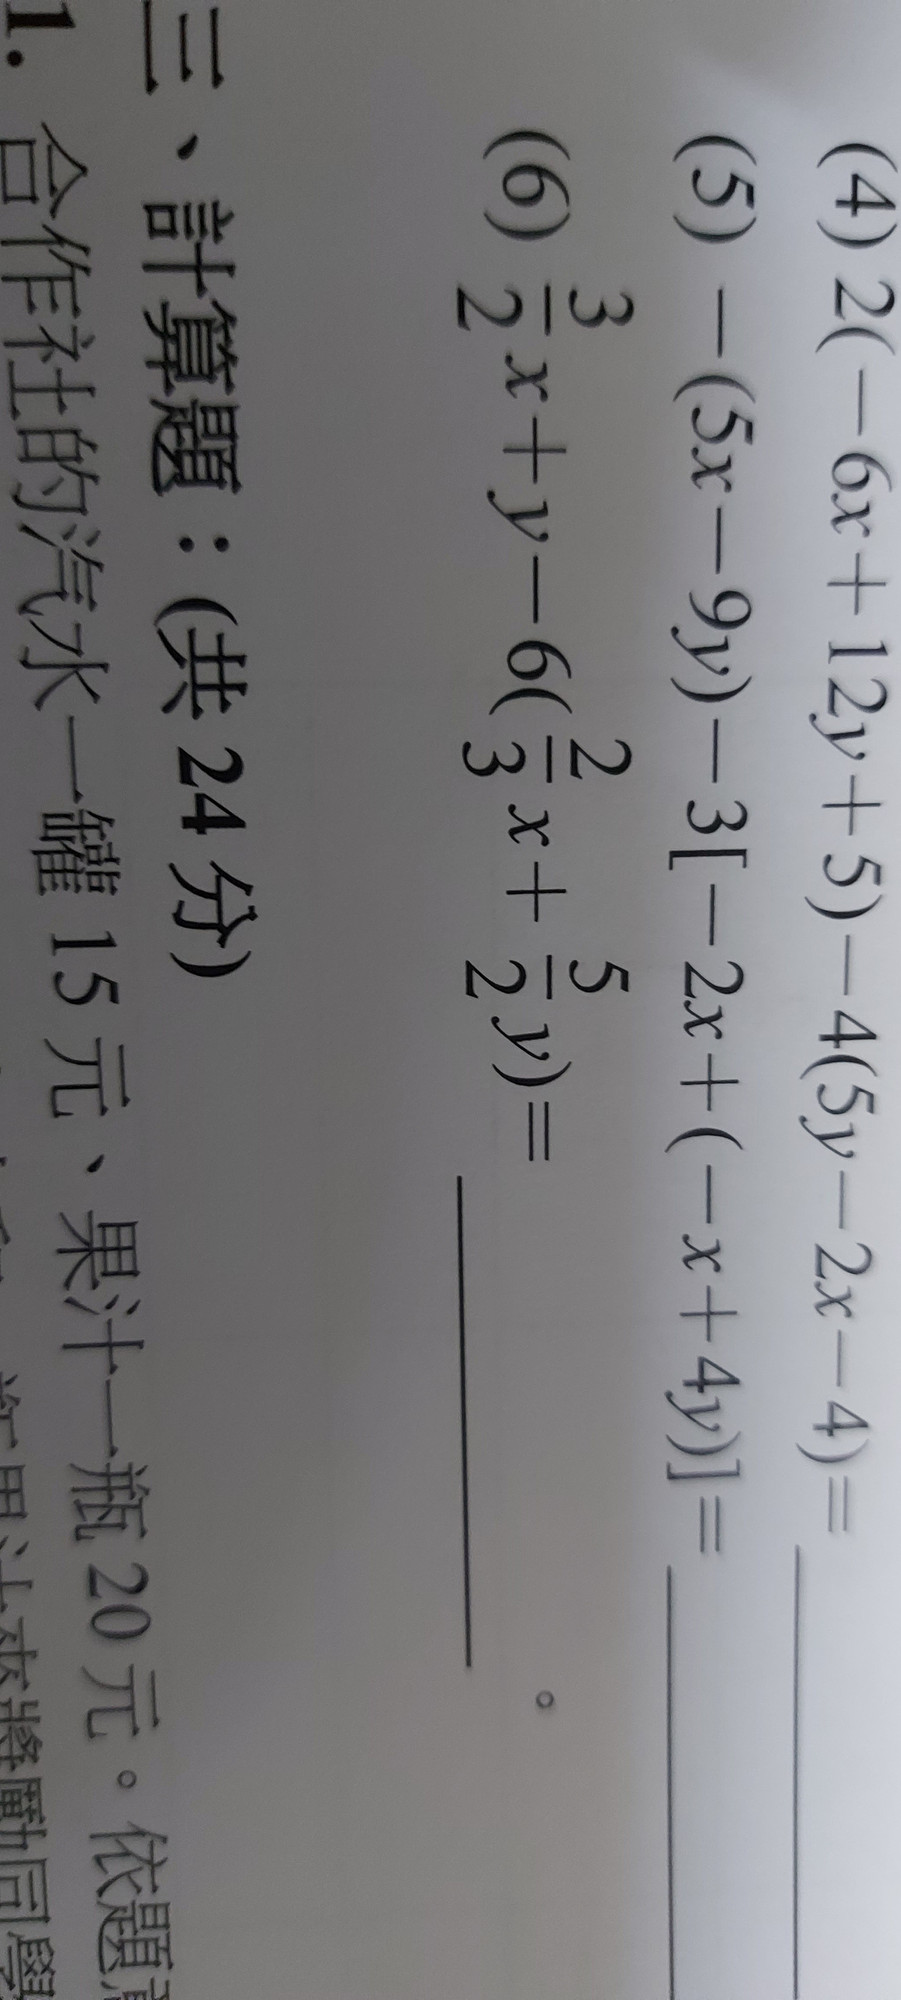 (4) 2(－6x＋12y＋5)－4(5y－2x－4)＝
(5) －(5x－9y)－3[－2x＋(－x＋4y)]＝
(6) 3/2 x＋y－6(2/3 x＋5/2 y)＝ 。
三、計算題：(共 24 分)
1. 合作社的汽水一罐 15 元、果汁一瓶 20 元。依題